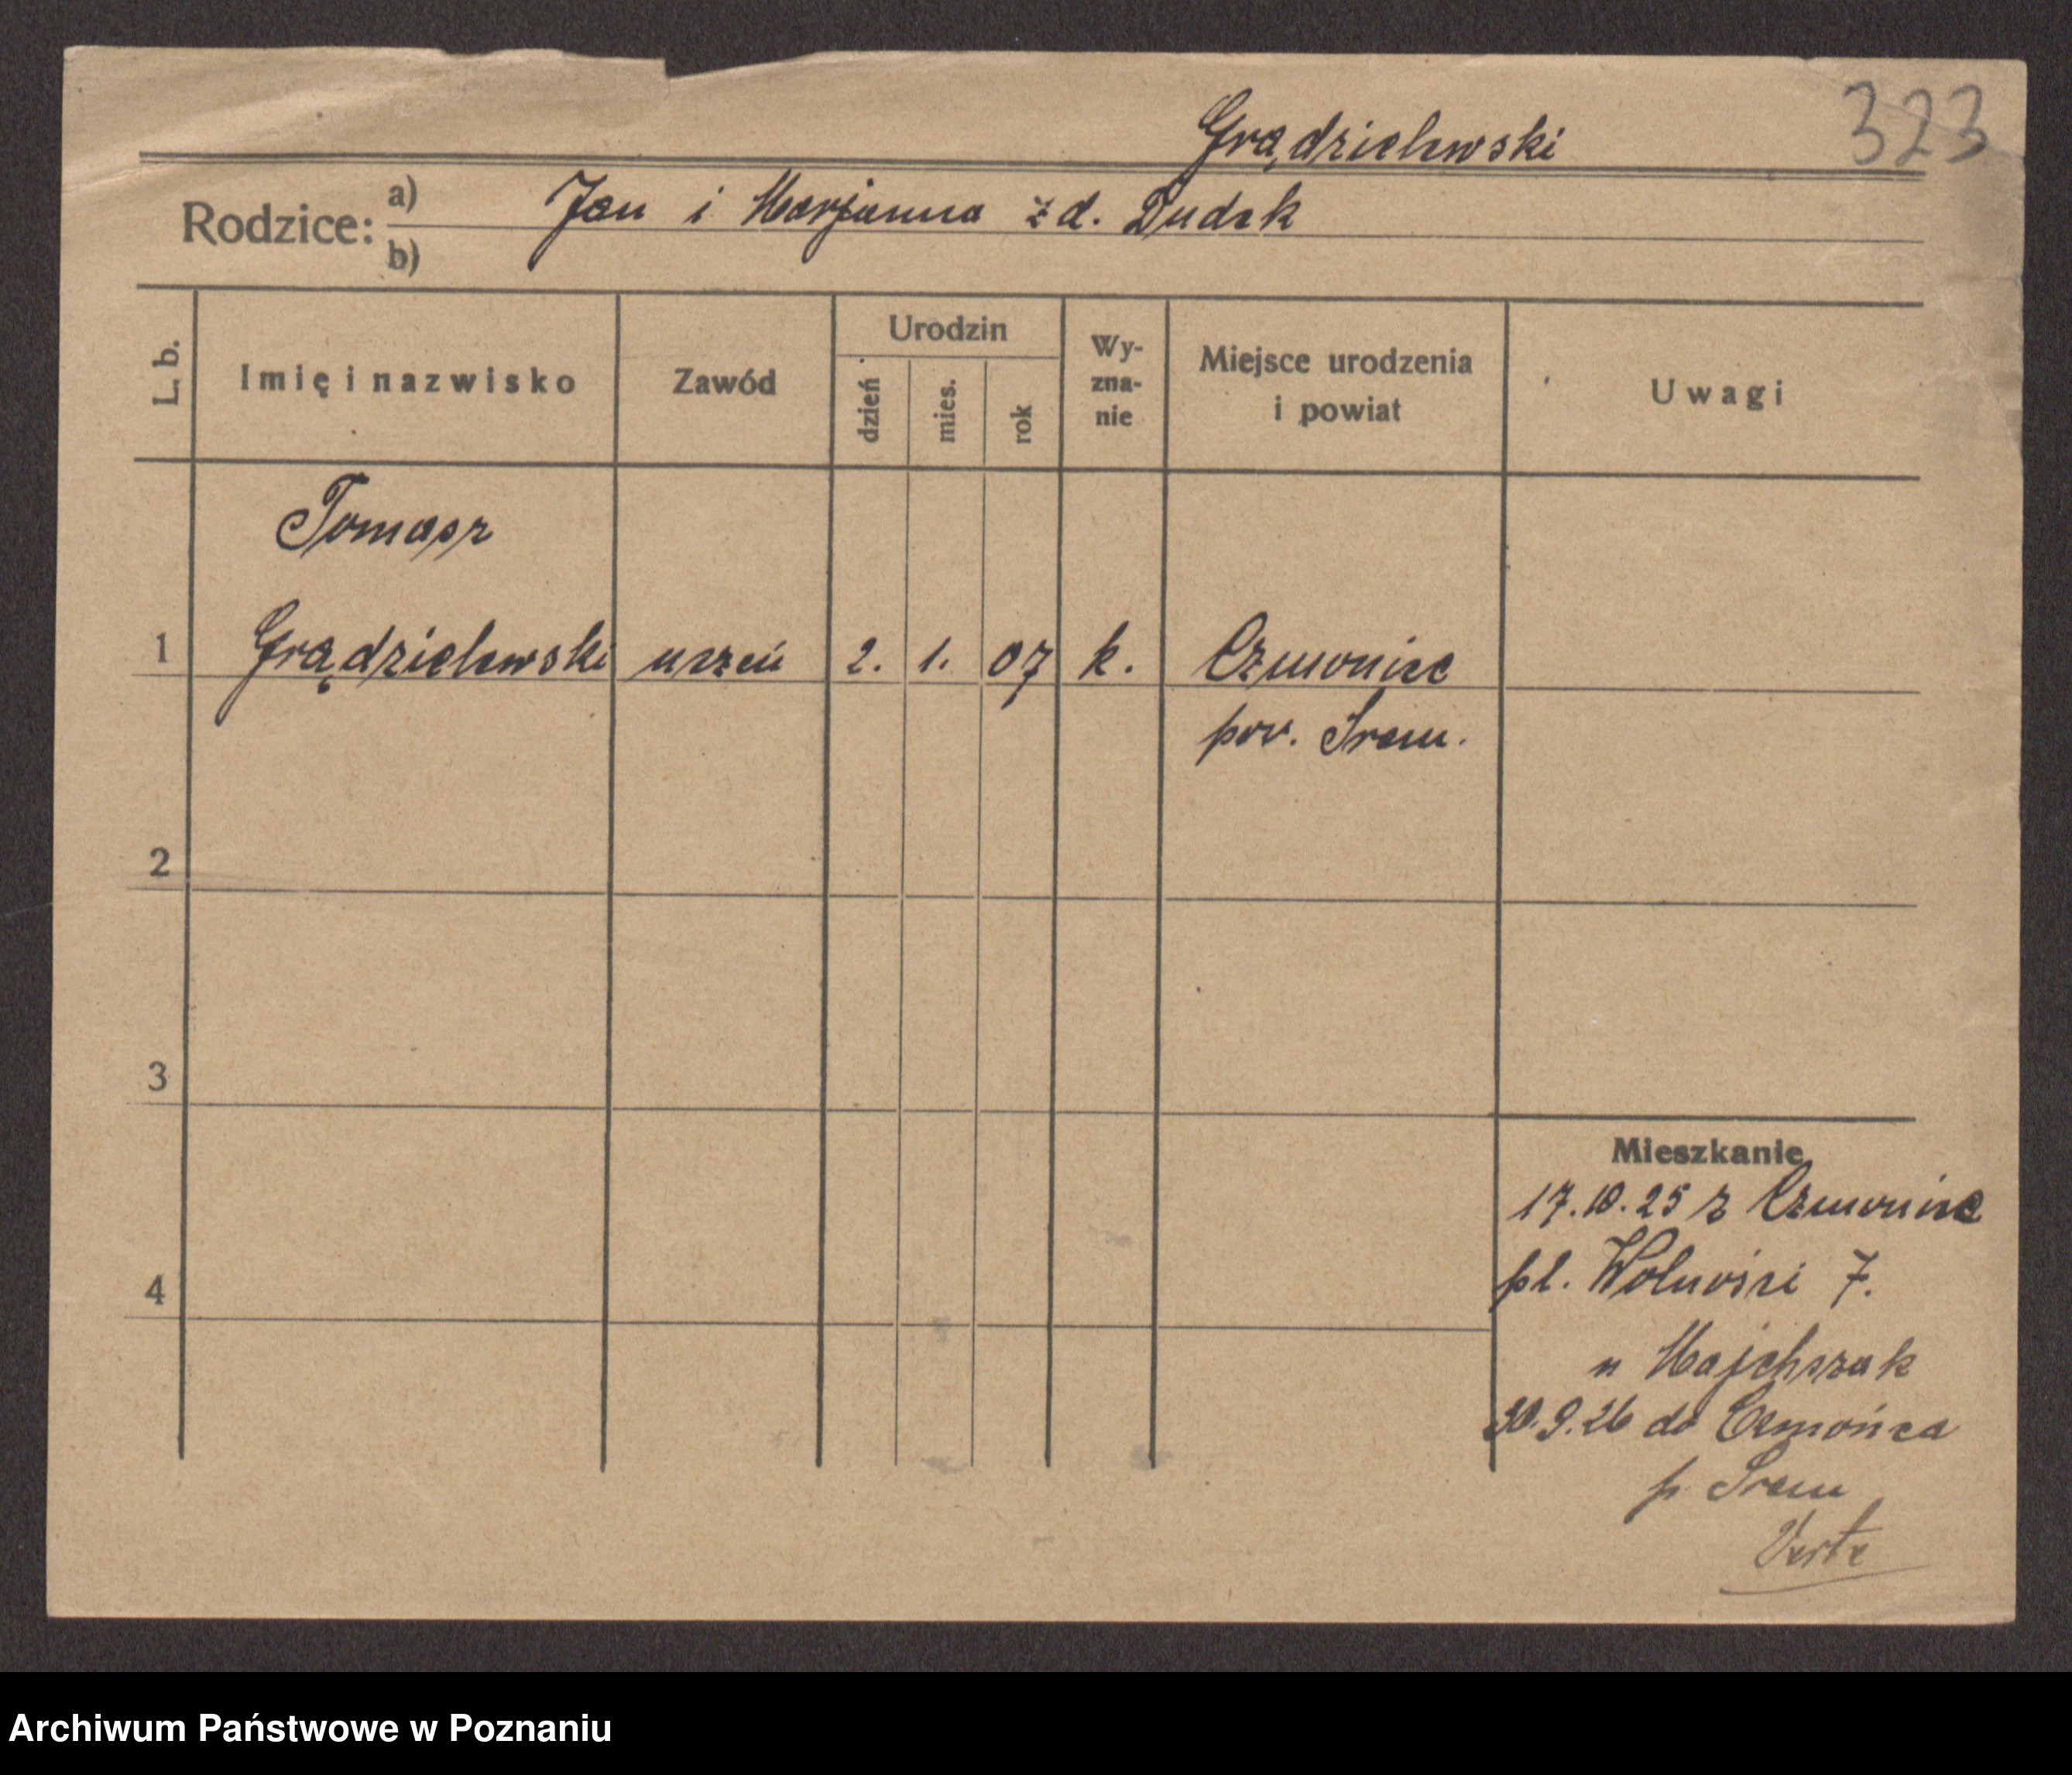 Grądzielewski
323
Rodzice: a) Jan i Marjanna z d. Dudek
b)
L. b.
Imię i nazwisko
Zawód
Urodzin
dzień
mies.
rok
Wy-
zna-
nie
Miejsce urodzenia
i powiat
Uwagi
Tomasz
1 Grądzielewski uczeń 2. 1. 07 k. Czmoniec
pow. Śrem.
2
3
4
Mieszkanie
17.10.25 z Czmoniec
pl. Wolności 7.
u Majchszak
30.9.26 do Czmońca
p. Śrem
Verte
Archiwum Państwowe w Poznaniu